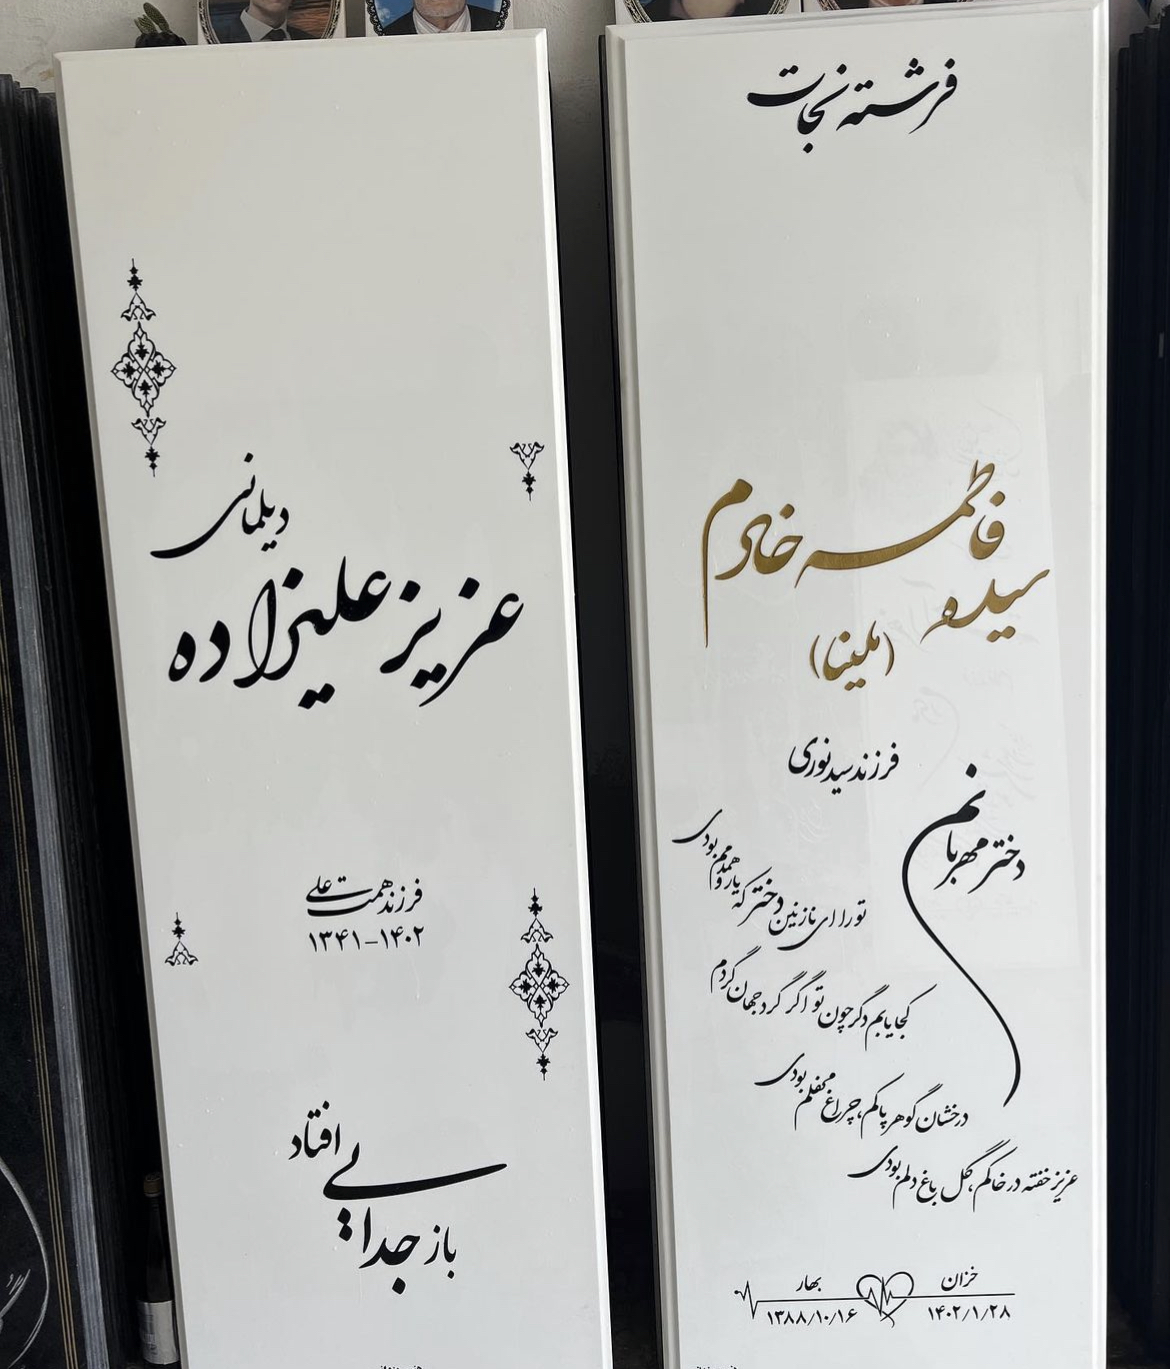 فرشته نجات
سیده فاطمه خادم
(ملینا)
فرزند سید نوری
دختر مهربانم
تو را ای نازنین دختر که یار و همدمم بودی
کجا یابم دگر چون تو اگر گرد جهان گردم
درخشان گوهر پاکم، چراغ محفلم بودی
عزیز خفته در خاکم، گل باغ دلم بودی
خزان بهار
۱۴۰۲/۱/۲۸ ۱۳۸۸/۱۰/۱۶
دیلمانی
عزیز علیزاده
فرزند همت علی
۱۳۴۱-۱۴۰۲
باز جدایی افتاد